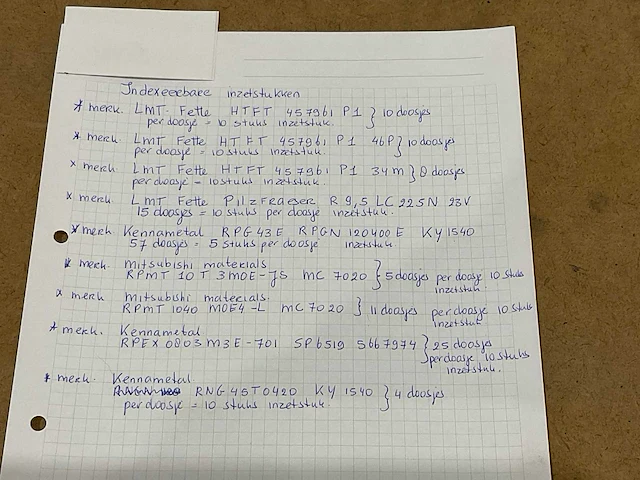 Indexeerbare inzetstukken
* merk. LMT. Fette HTFT 457961 P1 } 10 doosjes
per doosje = 10 stuks inzetstuk.
* merk. LMT Fette HTFT 457961 P1 46P } 10 doosjes
per doosje = 10 stuks inzetstuk.
* merk. LMT Fette HTFT 457961 P1 34M } 8 doosjes
per doosje = 10 stuks inzetstuk.
* merk. LMT Fette Pilzfraeser R 9,5 LC 225N 23V
15 doosjes = 10 stuks per doosje inzetstuk.
* merk. Kennametal RPG 43E RPGN 120400 E KY 1540
57 doosjes = 5 stuks per doosje inzetstuk.
* merk. mitsubishi materials
RPMT 10 T 3 MOE-JS MC 7020 } 5 doosjes per doosje 10 stuks
inzetstuk.
* merk mitsubishi materials.
RPMT 1040 MOE4-L MC 7020 } 11 doosjes per doosje 10 stuks
inzetstuk
* merk. Kennametal
RPEX 0803 M3E-701 SP6519 5667974 } 25 doosjes
per doosje 10 stuks
inzetstuk.
* merk. Kennametal
RNG 45T0420 KY 1540 } 4 doosjes
per doosje = 10 stuks inzetstuk.